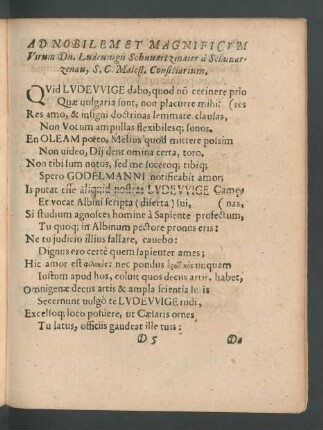 AD NOBILEM ET MAGNIFICVM
Virum Dn. Ludouuigũ Schuuartzmaier à Schuuar-
zenau, S. C. Maiest. Consiliarium.
QVid LVDEVVIGE dabo, quod nõ cecinere prio
Quæ uulgaria sunt, non placuere mihi: (res
Res amo, & insigni doctrinas lemmate clausas,
Non Vocum ampullas flexibilesq; sonos.
En OLEAM poëto. Melius quod mittere possim
Non video, Dij dent omina certa, toro.
Non tibi sum notus, sed me soceroq; tibiq;
Spero GODELMANNI notificabit amor;
Is putat esse aliquid nostras LVDEVVIGE Camœ
Et vocat Albini scripta (diserta) sui, (nas,
Si studium agnosces homine à Sapiente profectum,
Tu quoq; in Albinum pectore pronus eris:
Ne tu judicio illius fallare, cauebo:
Dignus ero certè quem sapienter ames;
Hic amor est nec pondus unquam
Iustum apud hos, coluit quos decus artis, habet,
Omnigenæ decus artis & ampla scientia
Secernunt uulgò te LVDEVVIGE rudi,
Excelsoq; loco posuere, ut Cæsaris ornes
Tu latus, officiis gaudeat ille tuis:
D 5 Da